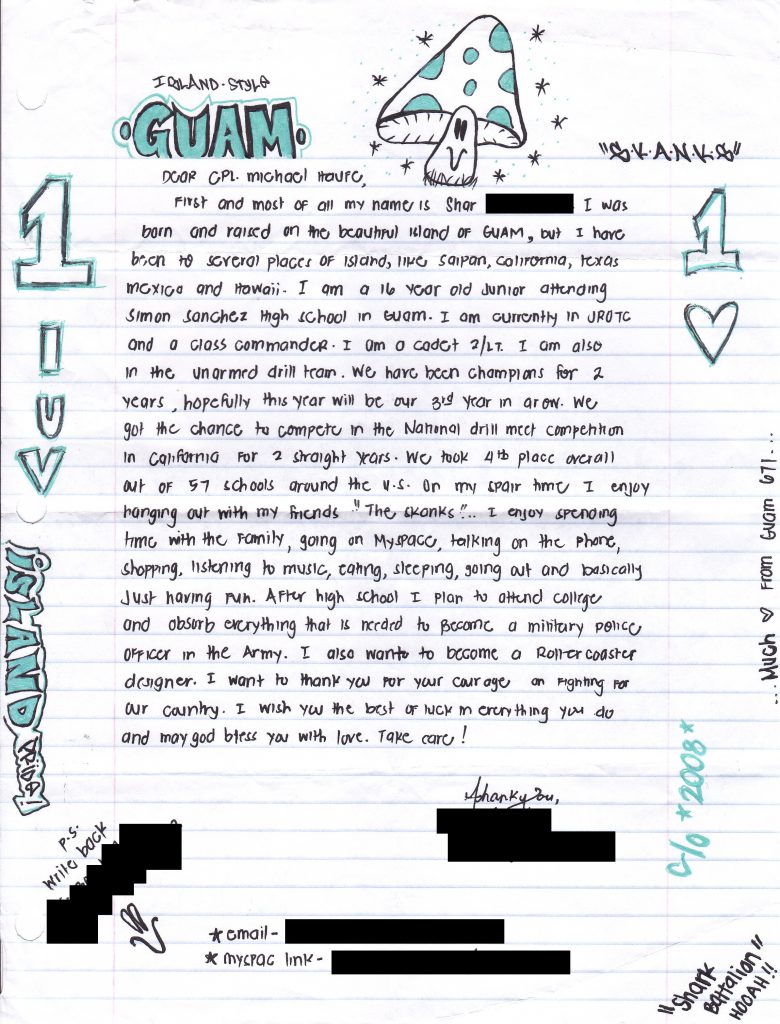 ISLAND·STYLE
·GUAM·
"S·K·A·N·K·S"
Dear CPL. Michael
First and most of all my name is Shar I was
born and raised on the beautiful island of GUAM, but I have
been to several places of island, like Saipan, California, Texas
Mexico and Hawaii. I am a 16 year old Junior attending
Simon Sanchez High school in Guam. I am currently in JROTC
and a class commander. I am a cadet 2/LT. I am also
in the unarmed drill team. We have been champions for 2
years, hopefully this year will be our 3rd year in arow. We
got the chance to compete in the National drill meet competition
in California for 2 straight years. We took 4th place overall
out of 57 schools around the U.S. On my spair time I enjoy
hanging out with my friends "The Skanks"... I enjoy spending
time with the family, going on Myspace, talking on the phone,
shopping, listening to music, eating, sleeping, going out and basically
Just having fun. After high school I plan to attend college
and absorb everything that is needed to Become a military police
officer in the Army. I also want to become a Rollercoaster
designer. I want to thank you for your courage on fighting for
our country. I wish you the best of luck in everything you do
and may god bless you with love. Take care!
Thank You,
P.S.
write back
* email-
* myspac link-
1
I
U
V
ISLAND PRIDE!
1
...Much ♡ From Guam 671...
C/O *2008*
"Shark
Battalion"
HOOAH!!